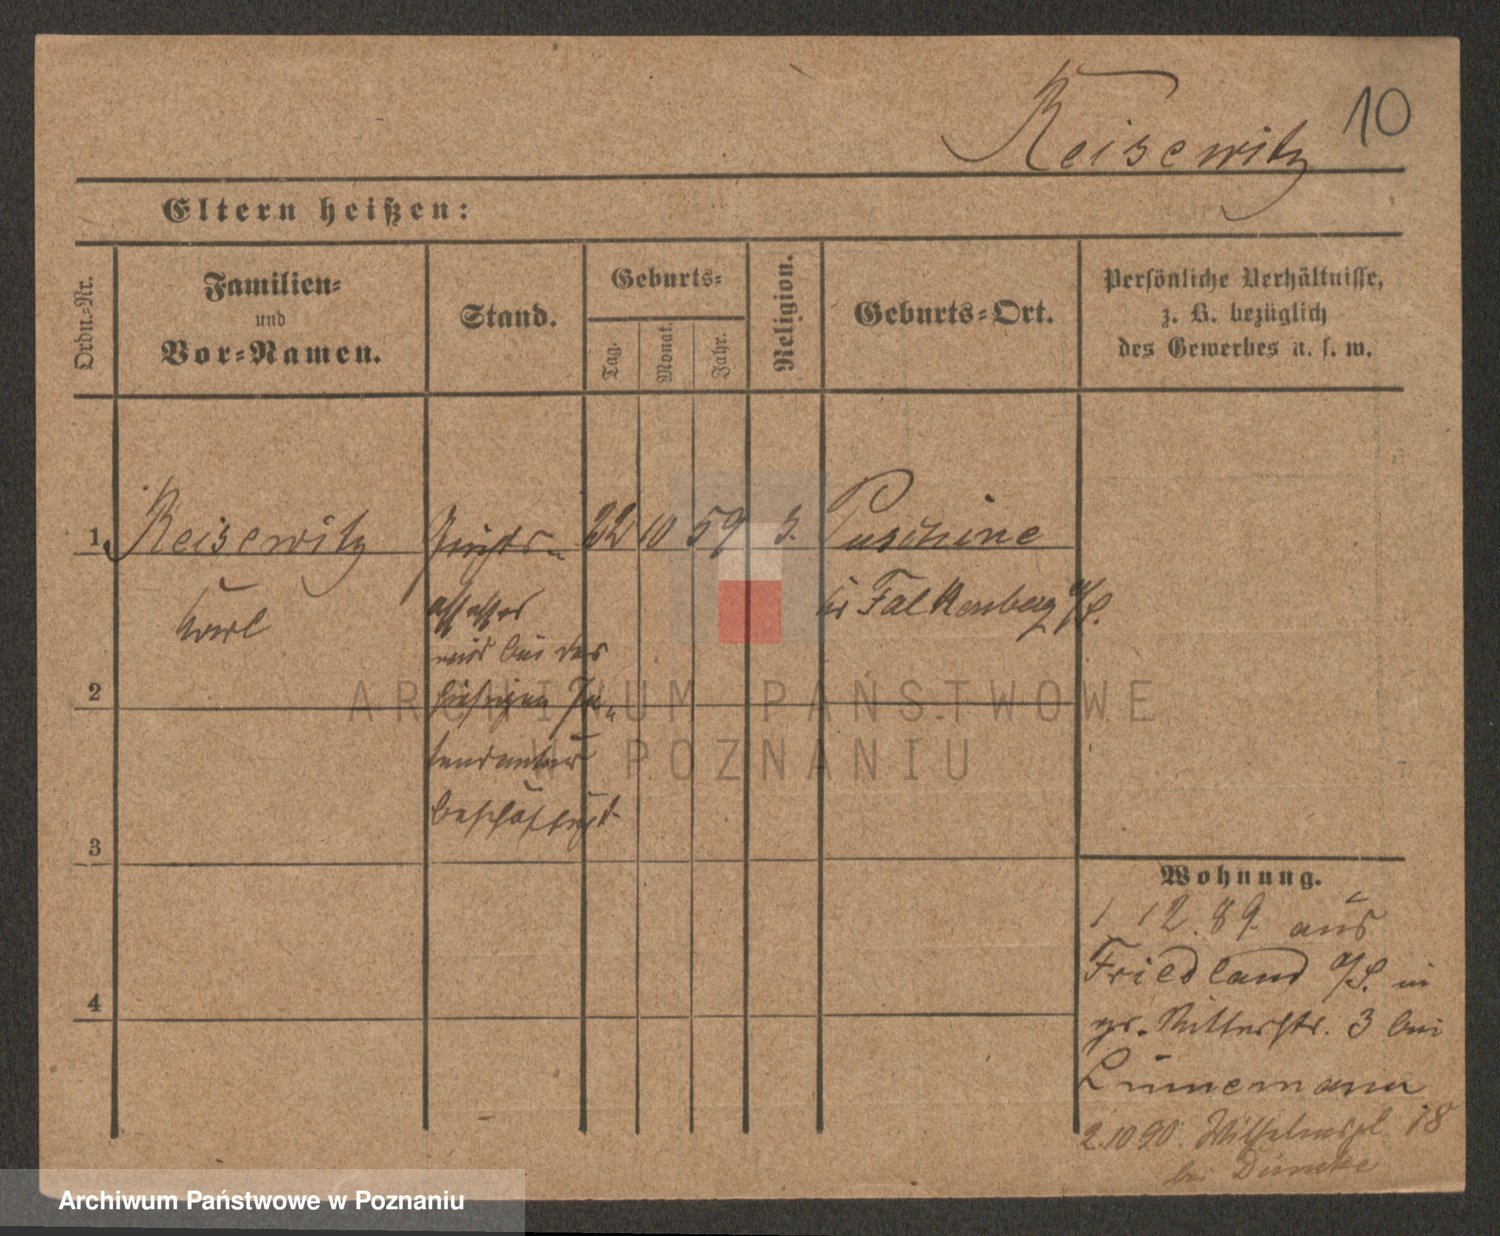 Reisewitz 10
Eltern heißen:
Ordn.-Nr.
Familien-
und
Vor-Namen.
Stand.
Geburts-
Tag.
Monat.
Jahr.
Religion.
Geburts-Ort.
Persönliche Verhältnisse,
z. B. bezüglich
des Gewerbes u. s. w.
1 Reisewitz Gerichts- 22 10 59 Puschine
Karl
assessor
Kr Falkenberg o/S.
wird bei der
2 hiesigen In-
tendantur
beschäftigt
3
4
Wohnung.
1 12. 89. aus
Friedland o/S. in
gr. Ritterstr. 3 bei
Linnemann
2.10 90. Wilhelmspl. 18
bei
ARCHIWUM PAŃSTWOWE
W POZNANIU
Archiwum Państwowe w Poznaniu